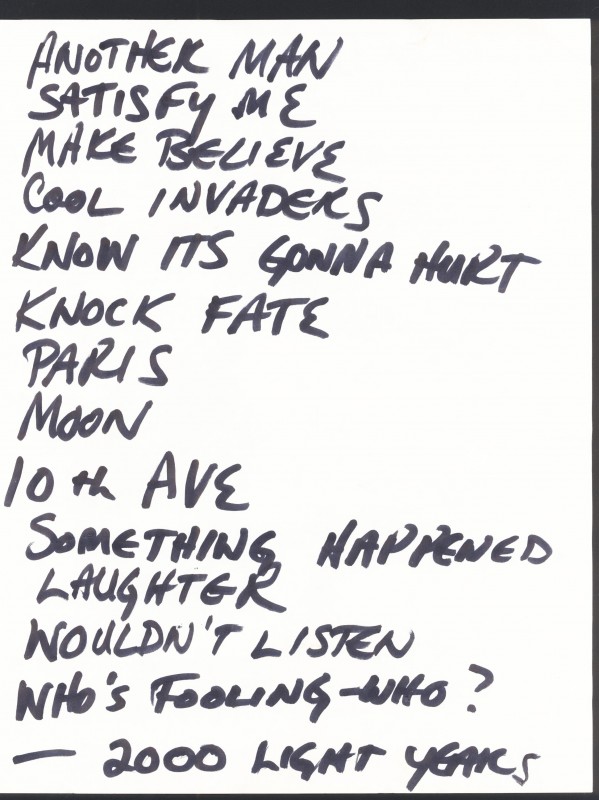 ANOTHER MAN
SATISFY ME
MAKE BELIEVE
COOL INVADERS
KNOW ITS GONNA HURT
KNOCK FATE
PARIS
MOON
10th AVE
SOMETHING HAPPENED
LAUGHTER
WOULDN'T LISTEN
WHO'S FOOLING-WHO?
— 2000 LIGHT YEARS